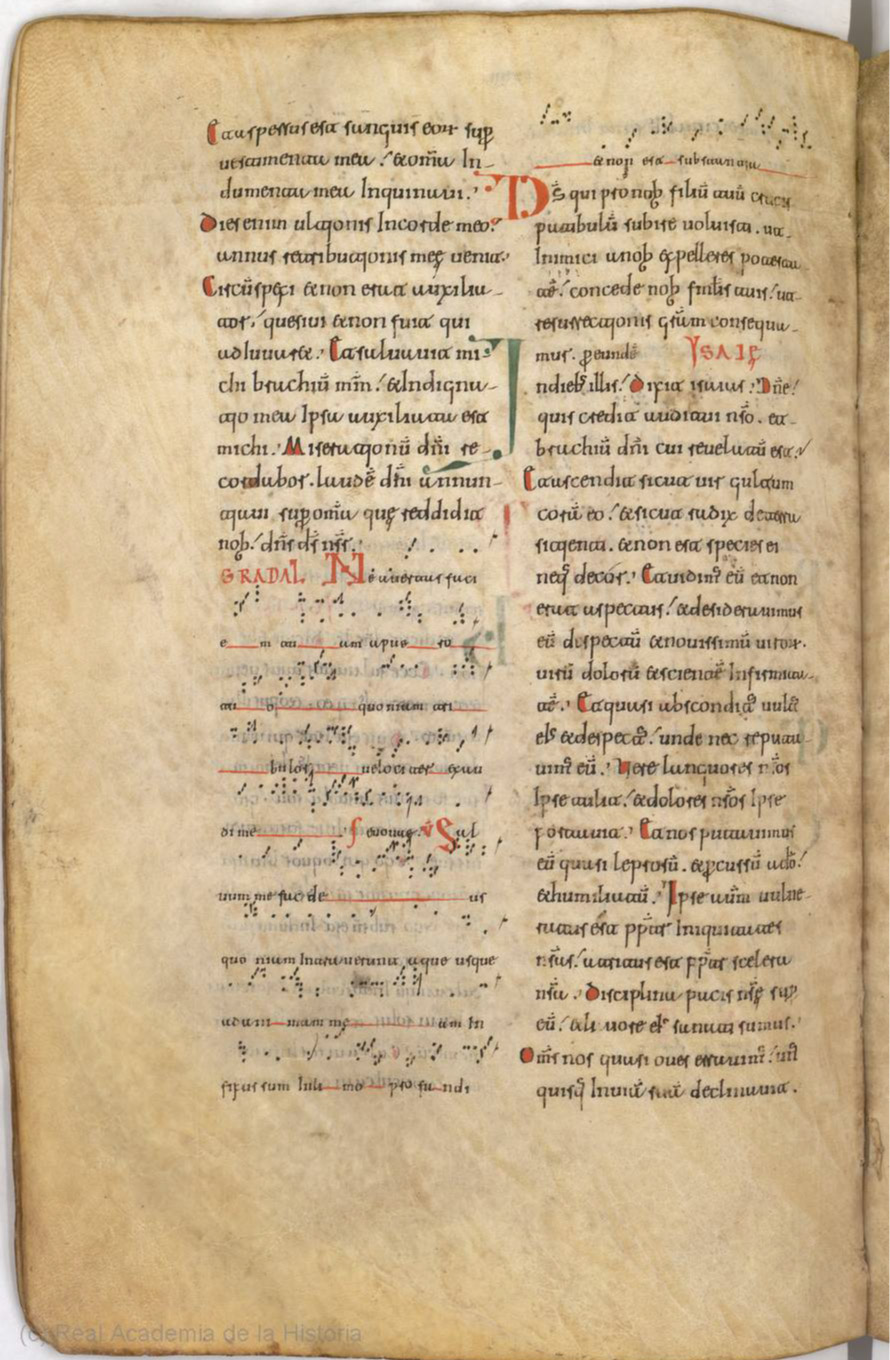 Et aspersus est sanguis eorum sup̄
uestimenta mea / et om̄ia In-
dumenta mea Inquinaui.
Dies enim ultionis In corde meo
annus retributionis meę uenit.
Circūspexi et non erat auxilia-
tor / quesiui et non fuit qui
adiuuaret. Et saluauit mi-
chi brachiū mm̄ / et Indigna-
tio mea Ipsa auxiliata est
michi. Miserationū dn̄i re-
cordabor. laudē dn̄i annun-
tiaui sup om̄ia quę reddidit
nob / dn̄s ds̄ nr̄.
GRADAL Ne auertas faci
e m tu am a pue ro
tu o quoniam tri
bulor uelociter exau
di me euouae V Sal
uum me fac de us
quo niam Intrauerunt aque usque
ad ani mam me am In
fixus sum In li mo pro fu ndi
et non est substantia
Ds̄ qui pro nob filiū tuū crucis
patibulū subire uoluisti. ut
Inimici a nob expelleres potesta
tē / concede nob famlis tuis / ut
resurrectionis gr̄am consequa-
mur. p eundē YSAIE
In dieb illis / Dixit isaias. Dn̄e /
quis credidit auditui nr̄o. et
brachiū dn̄i cui reuelatū est.
Et ascendit sicut uirgultum
corā eo / et sicut radix de terra
sitienti. et non est species ei
neq decor. Et uidim eū et non
erat aspectus / et desiderauimus
eū despectū et nouissimū uiror.
uirū dolorū et scientē Infirmita-
tē. Et quasi absconditus uult
eis et despectus / unde nec reputa-
uim eū. Vere languores nr̄os
Ipse tulit / et dolores nr̄os Ipse
portauit. Et nos putauimus
eū quasi leprosū. et pcussū a dō /
et humiliatū. Ipse autm̄ uulne-
ratus est ppt̄ Iniquitates
nr̄as / attritus est ppt̄ scelera
nr̄a. Disciplina pacis nr̄ę sup
eū / et liuore ei sanati sumus.
Om̄s nos quasi oues errauim / un
quisq In uiā suā declinauit.
(c) Real Academia de la Historia